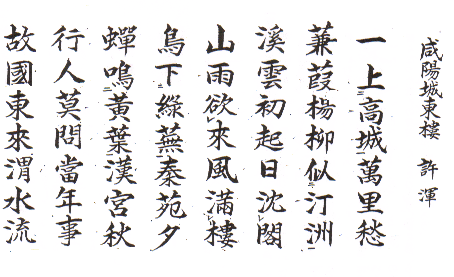 咸陽城東樓 許渾
一上高城萬里愁
蒹葭楊柳似汀洲
溪雲初起日沈閣
山雨欲來風滿樓
鳥下綠蕪秦苑夕
蟬鳴黃葉漢宮秋
行人莫問當年事
故國東來渭水流